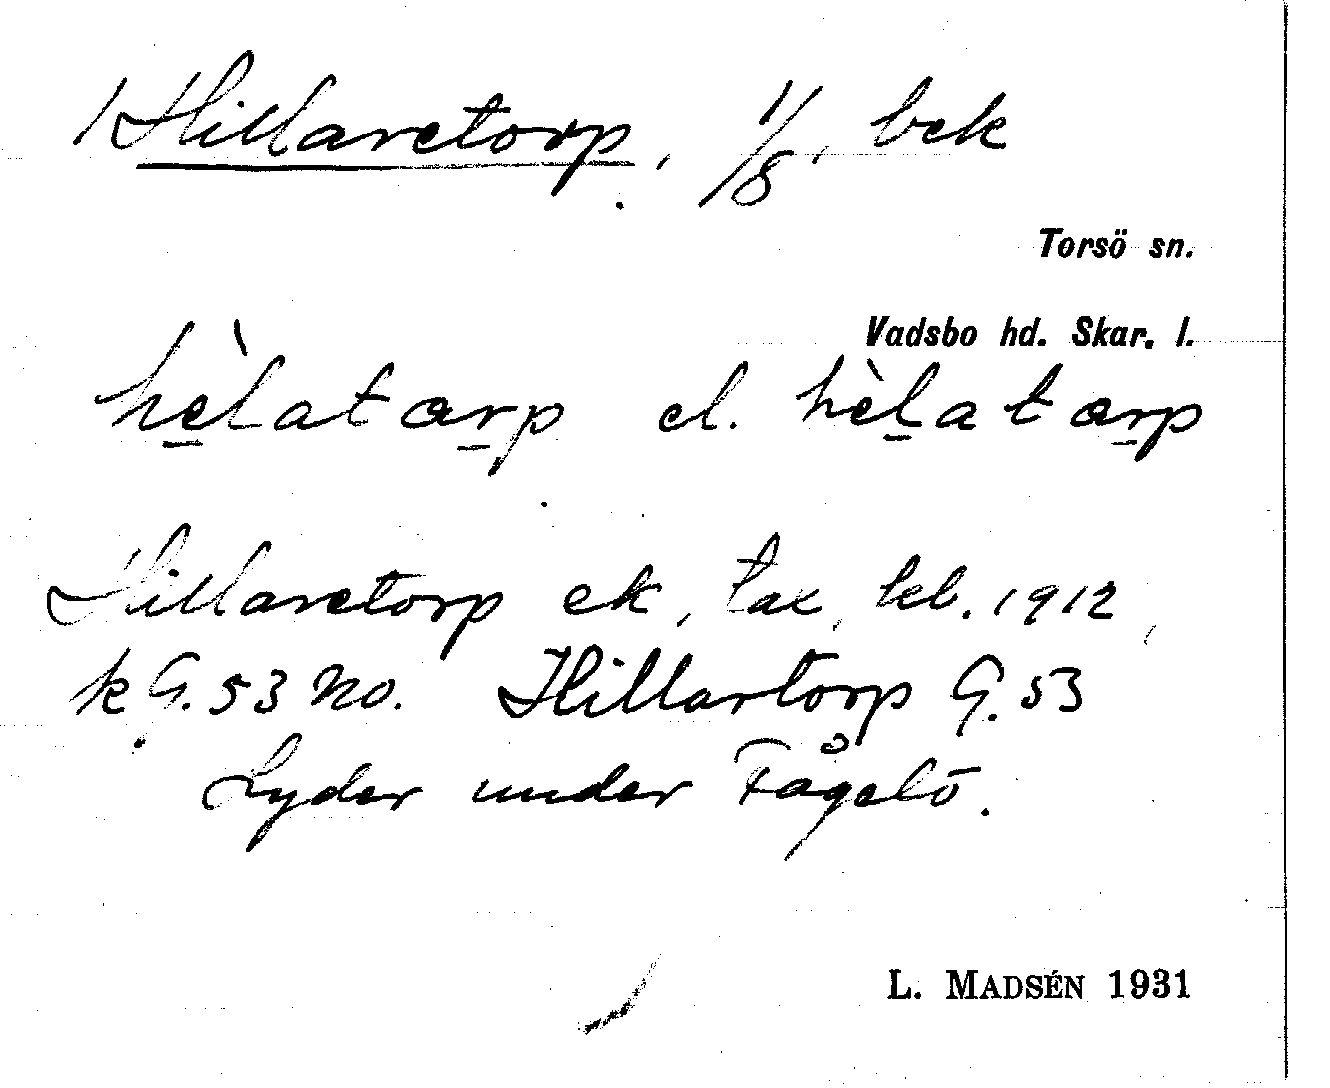 Hillaretorp, 1/8, bek
Torsö sn.
Vadsbo hd. Skar. l.
hèlatarp el. hèlatarp
Hillaretorp ek, tax. lel. 1912,
k G. 53 no. Hillartorp G. 53
Lyder under Fågelö.
L. MADSÉN 1931